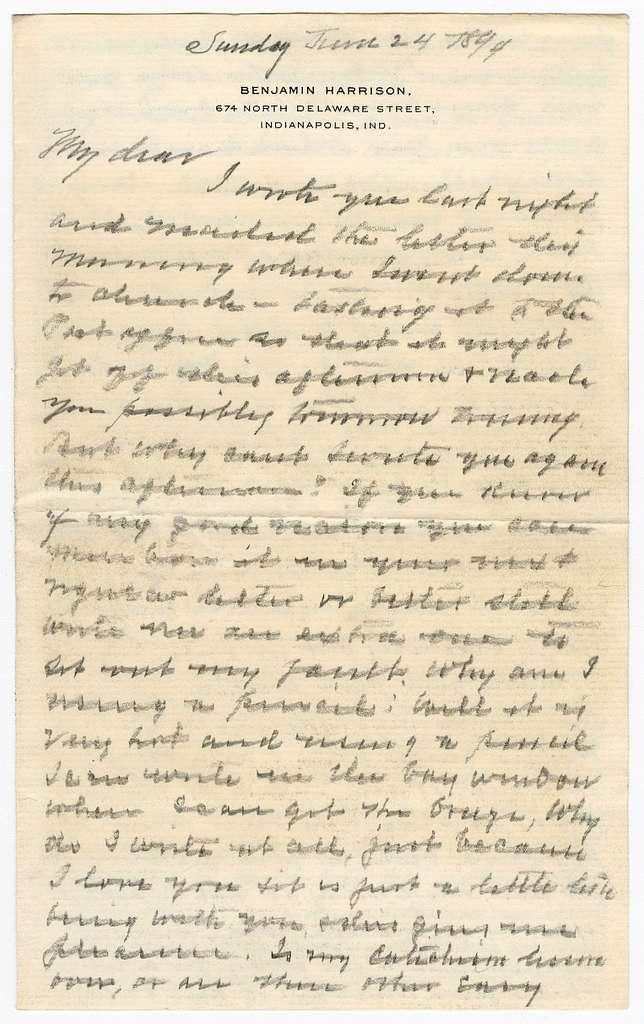 Sunday June 24 1894
BENJAMIN HARRISON,
674 NORTH DELAWARE STREET,
INDIANAPOLIS, IND.
My dear
I wrote you last night
and mailed the letter this
morning when I went down
to church — taking it to the
Post office so that it might
get off this afternoon & reach
you possibly tomorrow evening.
But why cant I write you again
this afternoon? If you know
of any good reason you can
mention it in your next
regular letter or better still
write me an extra one to
set out my fault. Why am I
using a pencil? Well it is
very hot and using a pencil
I can write in the bay window
where I can get the breeze, Why
do I write at all, just because
I love you & it is just a little like
being with you & this gives me
pleasure. Is my catechism lesson
over, or are there other easy